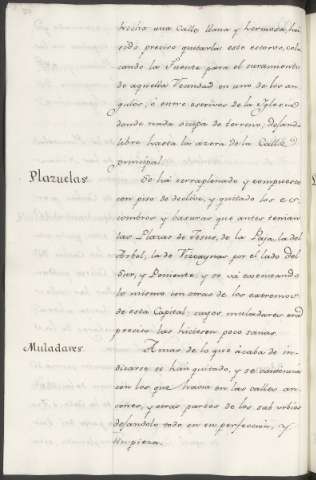 hecho una Calle llana y hermosa, ha
sido preciso quitarla este estorvo, colo-
cando la Fuente para el surtimiento
de aquella Vecindad en uno de los an-
gulos, ó entre estrivos de la Yglesia
donde nada ocupa de terreno, dejando
libre hasta la azera de la Calle
principal.
Plazuelas.
Se há terraplenado y compuesto
con piso de declive, y quitado los es-
combros y basuras que antes tenian
las Plazas de Jesus, de la Paja, la del
Arbol, la de Vizcaynas por el lado del
Sur, y Poniente; y se vá executando
lo mismo con otras de los extremos
de esta Capital; cuyos muladares era
preciso las hiciesen poco sanas.
Muladares.
A mas de lo que ácaba de in-
dicarse se han quitado, y se continúa
con los que havia en las calles, an-
cones, y otras partes de los suburbios
dejandolo todo en perfeccion, y
limpieza.